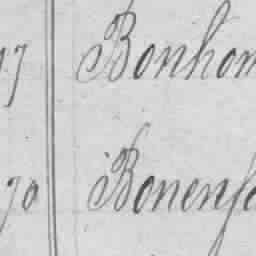 17 Bonhom
70 Bonenfa